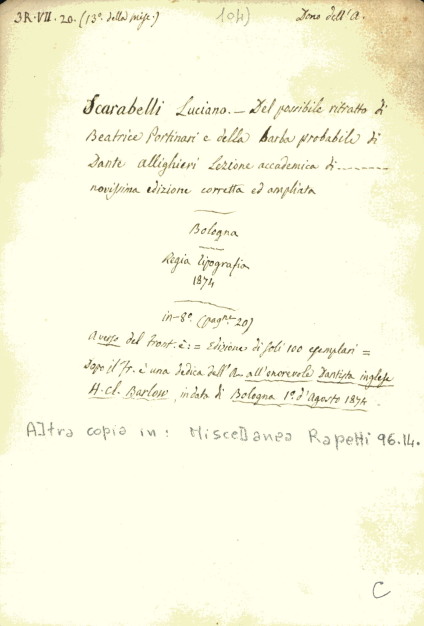 3R.VII.20. (13ª della misc.) 104) Dono dell'A.
Scarabelli Luciano. — Del possibile ritratto di
Beatrice Portinari e della barba probabile di
Dante Allighieri Lezione accademica di --------
novissima edizione corretta ed ampliata
Bologna
Regia Tipografia
1874
in-8º (pagne 20)
A verso del front. è: = Edizione di soli 100 esemplari =
Dopo il fr. è una dedica dell'A. all'onorevole Dantista inglese
H. Cl. Barlow, in data di Bologna 1º d'Agosto 1874
Altra copia in: Miscellanea Rapetti 96.14.
C